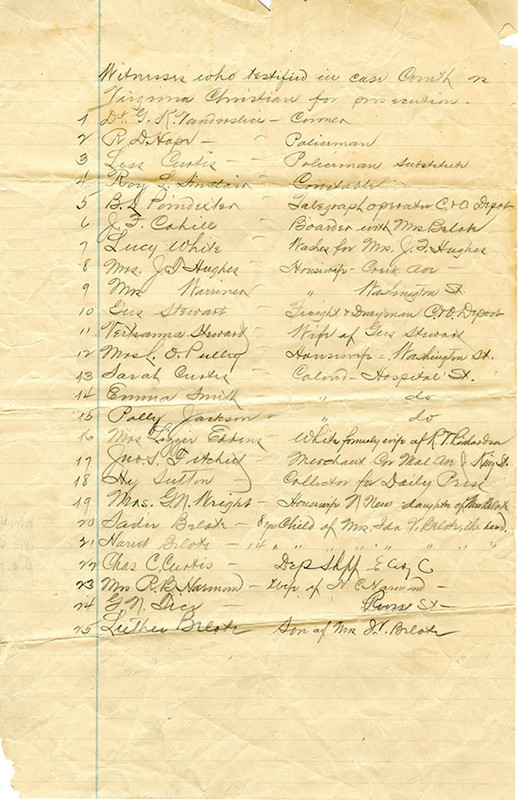 Witnesses who testified in case Comth vs
Virginia Christian for prosecution.
1 Dr. G. K. Vanderslice - Coroner
2 R. D. Hope - " Policeman
3 Less Curtis - " Policeman substitute
4 Roy L. Sinclair - Constable
5 B. L. Poindexter - Telegraph operator C&O Depot
6 J. F. Cahill - Boarder with Mrs Belote
7 Lucy White - Washes for Mrs. J. T. Hughes
8 Mrs. J. T. Hughes - Housewife - Creek Ave -
9 Mrs Warriner " Washington St.
10 Gus Stewart - Freight & Drayman C&O. Depot
11 Stewart - Wife of Gus Stewart
12 Mrs. L. O. Pulley Housewife - Washington St.
13 Sarah Curtis - Colored - Hospital St.
14 Emma Smith - " do
15 Polly Jackson - " do
16 Mrs Lizzie - White formerly wife of R. T.
17 Jno. S. - Merchant Cor Mal Av & King St.
18 Hy Sutton - Collector for Daily Press
19 Mrs. G. N. Wright - Housewife N News - daughter of Mrs Belote
20 Sadie Belote - 8 yrs Child of Mrs. Ida V. Belote, the
21 Hariet Belote - 14 " " " " " " "
22 Chas C. Curtis - Dep Shff E City C
23 Mrs R. B. Harmond - Wife of N. C. Harmond -
24 G. N. St -
25 Luther Belote Son of Mrs I. V. Belote